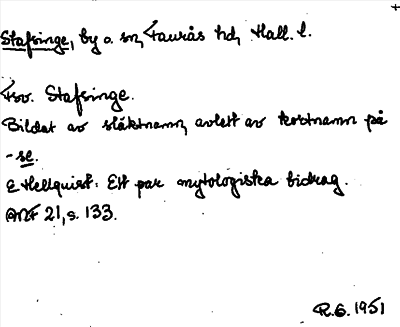 Stafsinge, by o. sn, Faurås hd, Hall. l.
Fsv. Stafsinge.
Bildat av släktnamn, avlett av kortnamn på
-se.
E Hellquist: Ett par mytologiska bidrag.
ANF 21, s. 133.
R.G. 1951